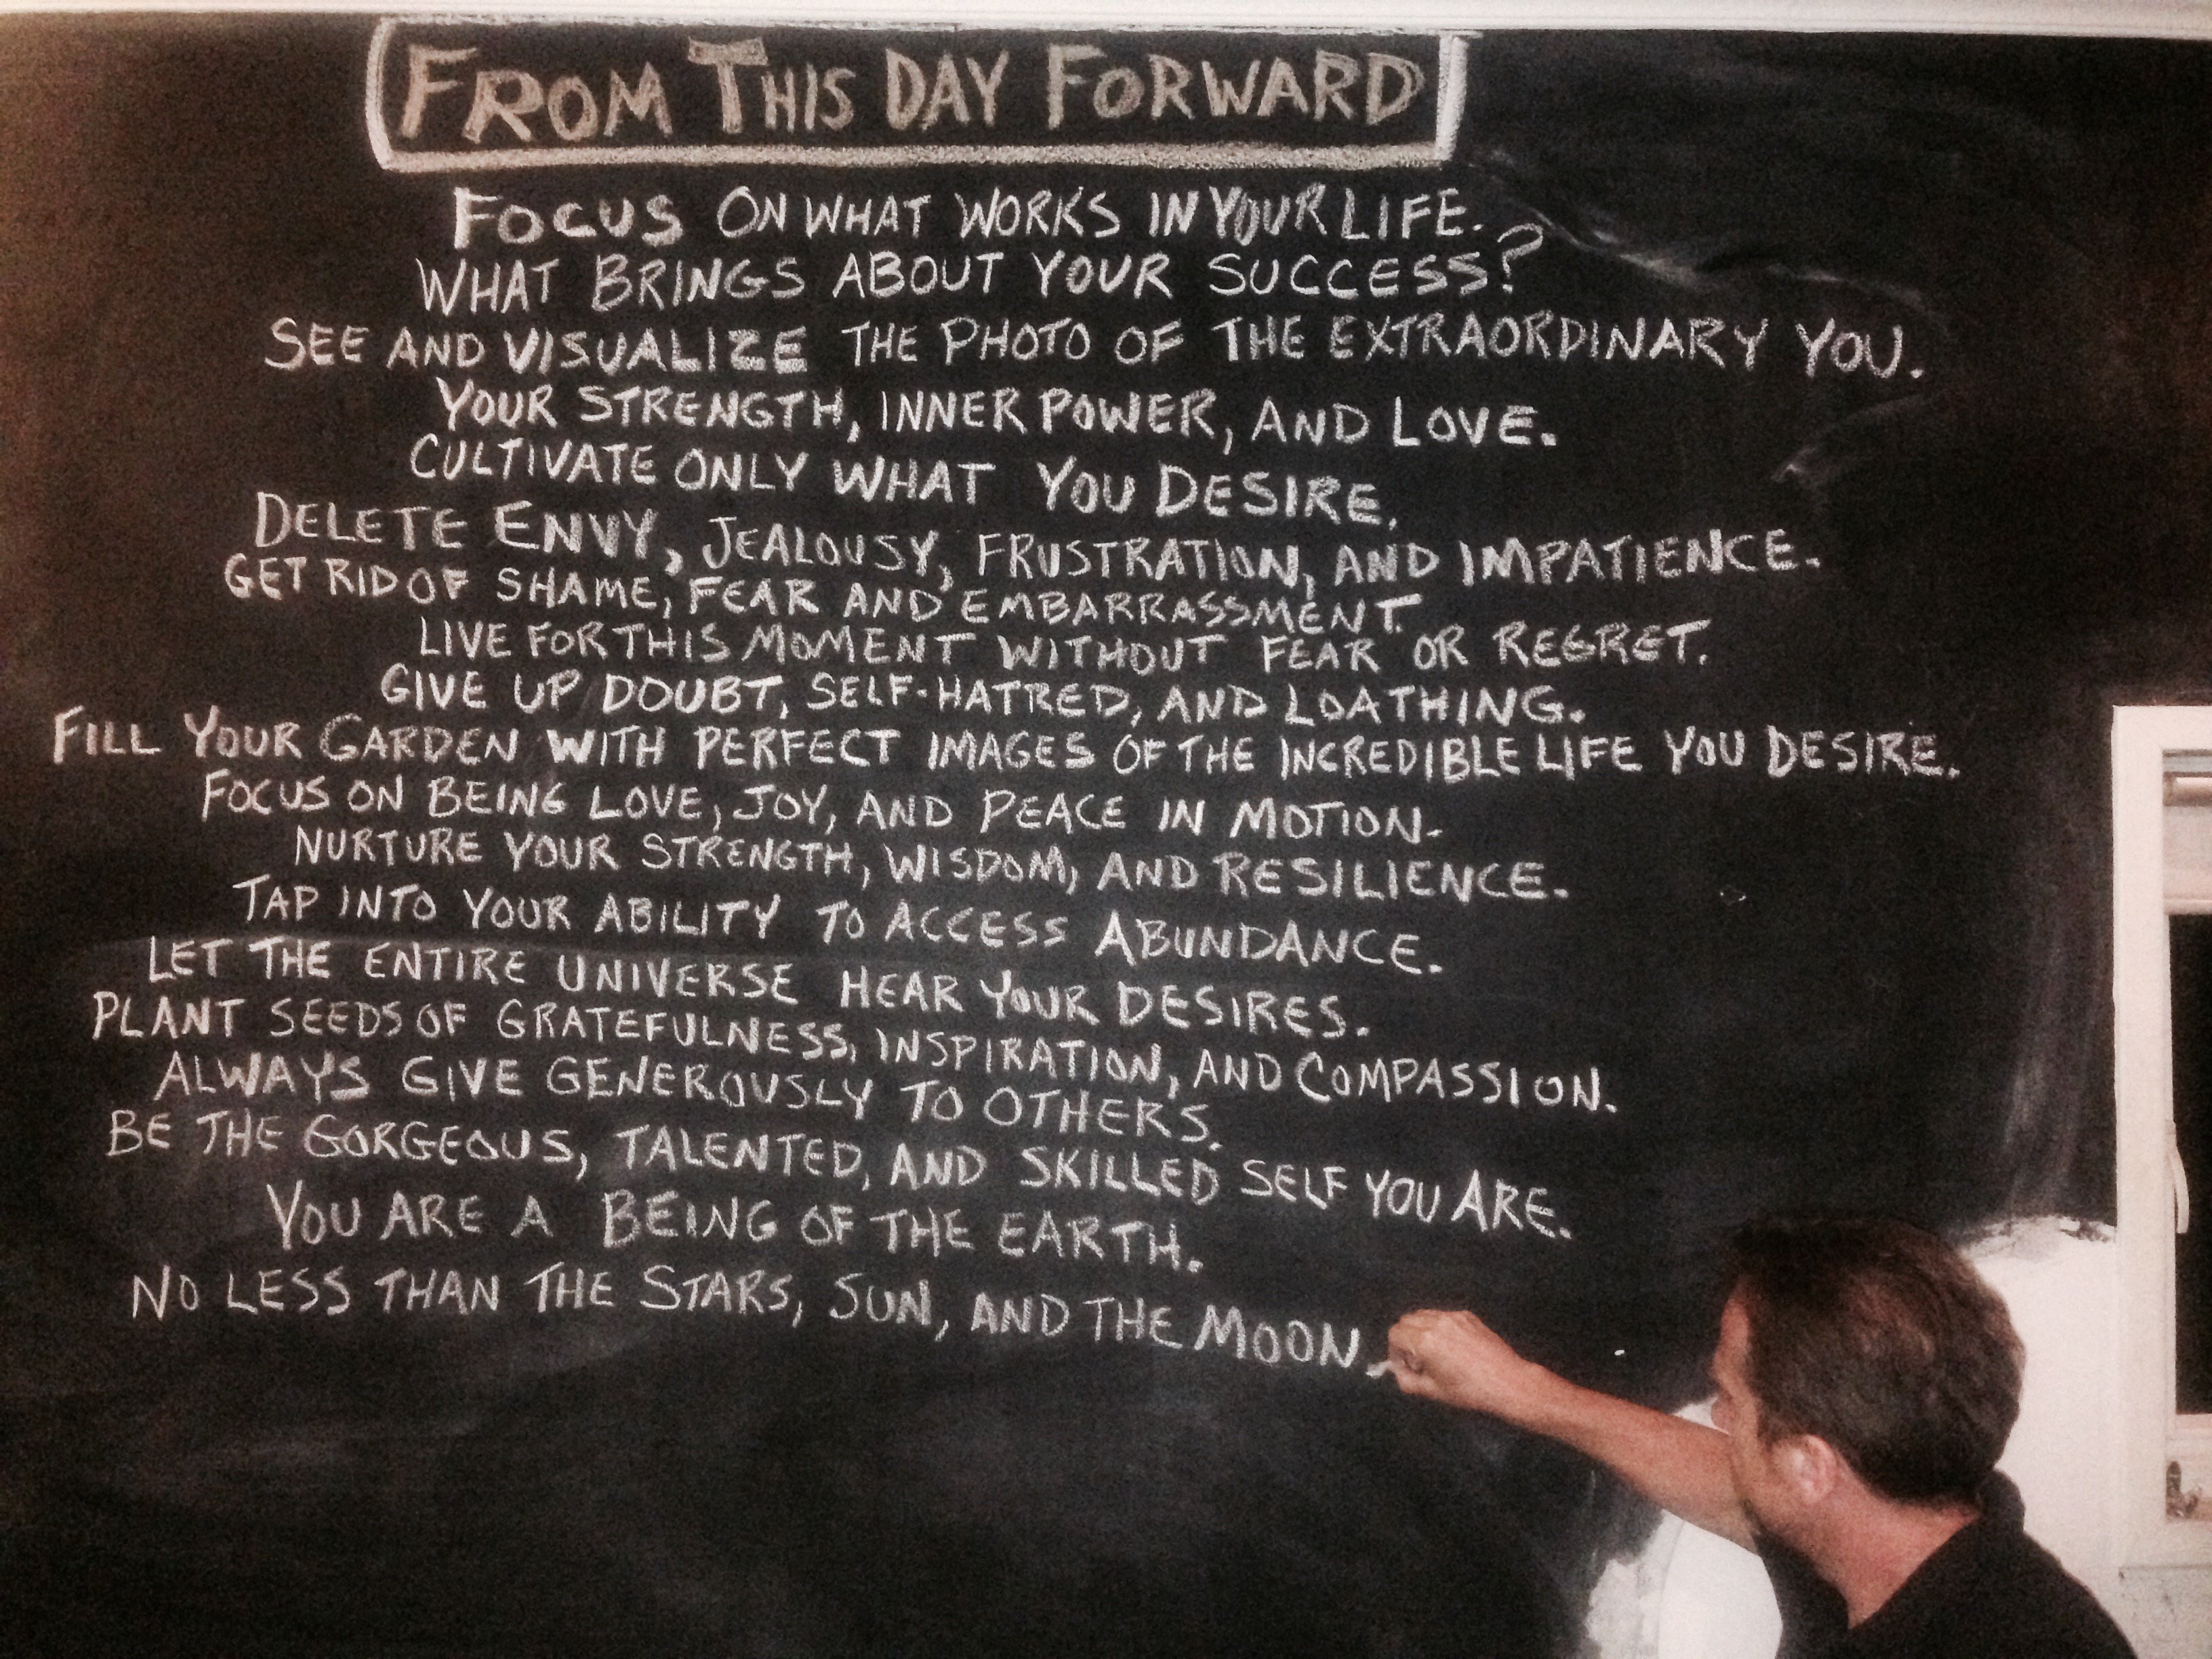 FROM THIS DAY FORWARD
FOCUS ON WHAT WORKS IN YOUR LIFE.
WHAT BRINGS ABOUT YOUR SUCCESS?
SEE AND VISUALIZE THE PHOTO OF THE EXTRAORDINARY YOU.
YOUR STRENGTH, INNER POWER, AND LOVE.
CULTIVATE ONLY WHAT YOU DESIRE.
DELETE ENVY, JEALOUSY, FRUSTRATION, AND IMPATIENCE.
GET RID OF SHAME, FEAR AND EMBARRASSMENT.
LIVE FOR THIS MOMENT WITHOUT FEAR OR REGRET.
GIVE UP DOUBT, SELF-HATRED, AND LOATHING.
FILL YOUR GARDEN WITH PERFECT IMAGES OF THE INCREDIBLE LIFE YOU DESIRE.
FOCUS ON BEING LOVE, JOY, AND PEACE IN MOTION.
NURTURE YOUR STRENGTH, WISDOM, AND RESILIENCE.
TAP INTO YOUR ABILITY TO ACCESS ABUNDANCE.
LET THE ENTIRE UNIVERSE HEAR YOUR DESIRES.
PLANT SEEDS OF GRATEFULNESS, INSPIRATION, AND COMPASSION.
ALWAYS GIVE GENEROUSLY TO OTHERS.
BE THE GORGEOUS, TALENTED, AND SKILLED SELF YOU ARE.
YOU ARE A BEING OF THE EARTH.
NO LESS THAN THE STARS, SUN, AND THE MOON.